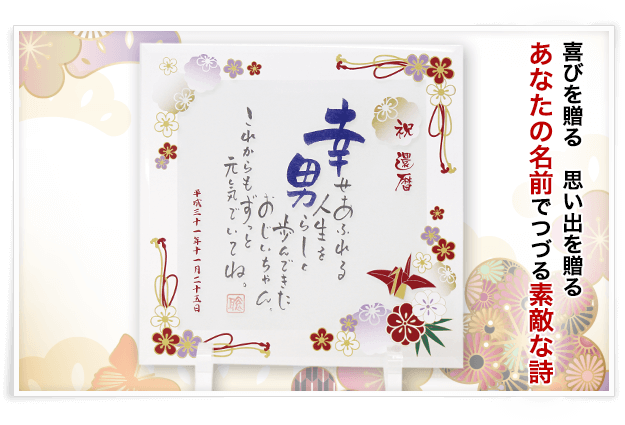 喜びを贈る　思い出を贈る
あなたの名前でつづる素敵な詩
祝 還暦
幸せあふれる
人生を
男らしく
歩んできた
おじいちゃん。
これからもずっと
元気でいてね。
平成二十一年十一月二十五日